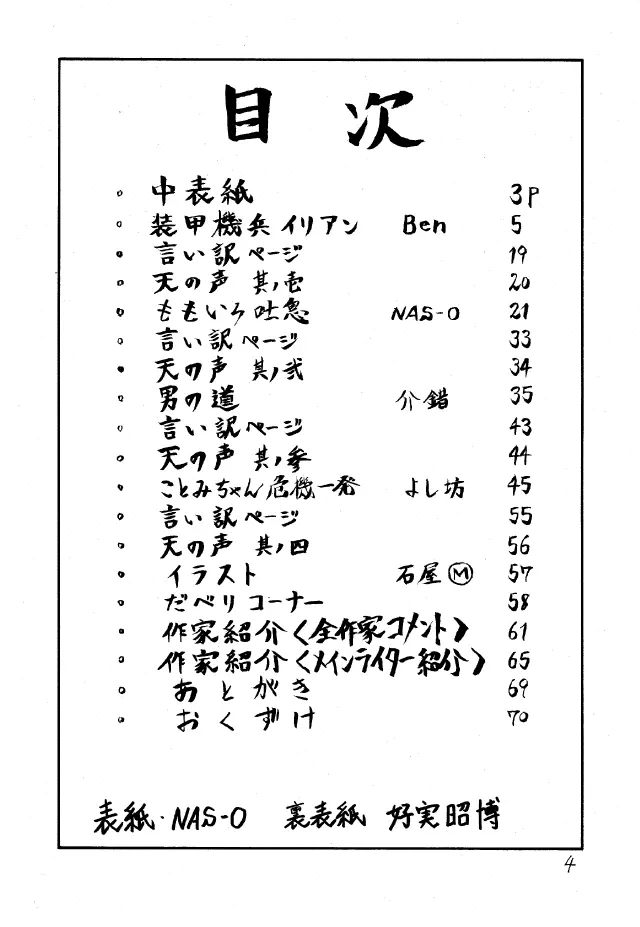 目次
・中表紙 3P
・装甲機兵イリアン Ben 5
・言い訳ページ 19
・天の声 其ノ壱 20
・ももいろ吐息 NAS-O 21
・言い訳ページ 33
・天の声 其ノ弐 34
・男の道 介錯 35
・言い訳ページ 43
・天の声 其ノ参 44
・ことみちゃん危機一発 よし坊 45
・言い訳ページ 55
・天の声 其ノ四 56
・イラスト 石屋Ⓜ 57
・だべりコーナー 58
・作家紹介〈全作家コメント〉 61
・作家紹介〈メインライター紹介〉 65
・あとがき 69
・おくずけ 70
表紙・NAS-O 裏表紙 好実昭博
4